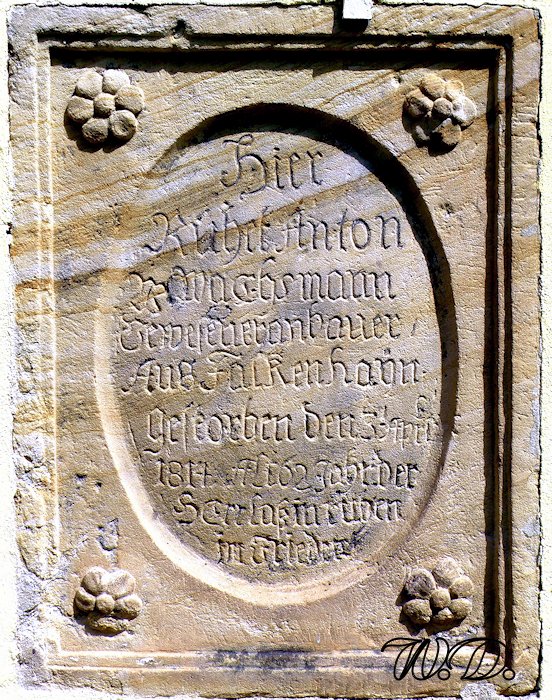 Hier
Ruhet Anton
Wachsmann
Gewesener anbauer
Aus Falkenhayn
gestorben den 3t April
1814 Alt 62 Jahr der
HErr laß in ruhen
im Frieden
W.D.